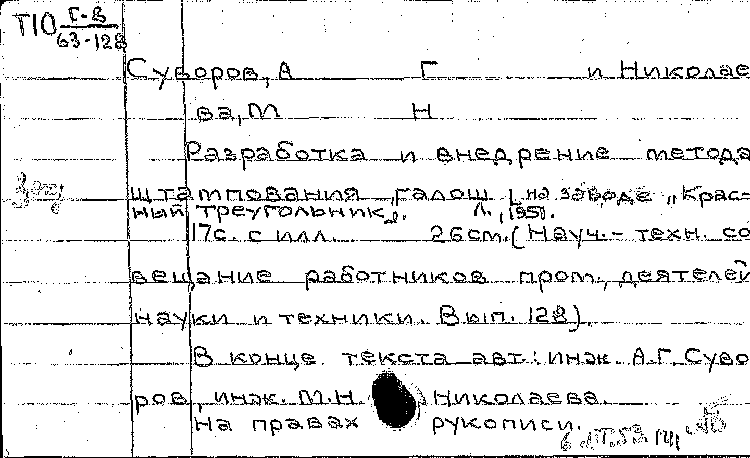 Т10 Г-В
63-128
Суворов, А Г и Николае
ва, М Н
Разработка и внедрение метода
штампования галош [на заводе „Крас-
ный треугольник". Л., 1951.
17с. с илл. 26см. (Науч.-техн. со
вещание работников пром., деятелей
науки и техники. Вып. 128).
В конце текста авт.: инж. А.Г. Суво
ров, инж. М.Н. Николаева.
На правах рукописи.